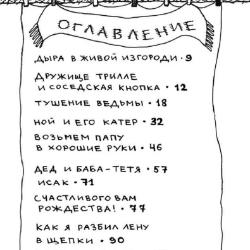 ОГЛАВЛЕНИЕ
ДЫРА В ЖИВОЙ ИЗГОРОДИ • 9
ДРУЖИЩЕ ТРИЛЛЕ
И СОСЕДСКАЯ КНОПКА • 12
ТУШЕНИЕ ВЕДЬМЫ • 18
НОЙ И ЕГО КАТЕР • 32
ВОЗЬМЕМ ПАПУ
В ХОРОШИЕ РУКИ • 46
ДЕД И БАБА-ТЕТЯ • 57
ИСАК • 71
СЧАСТЛИВОГО ВАМ
РОЖДЕСТВА! • 77
КАК Я РАЗБИЛ ЛЕНУ
В ЩЕПКИ • 90